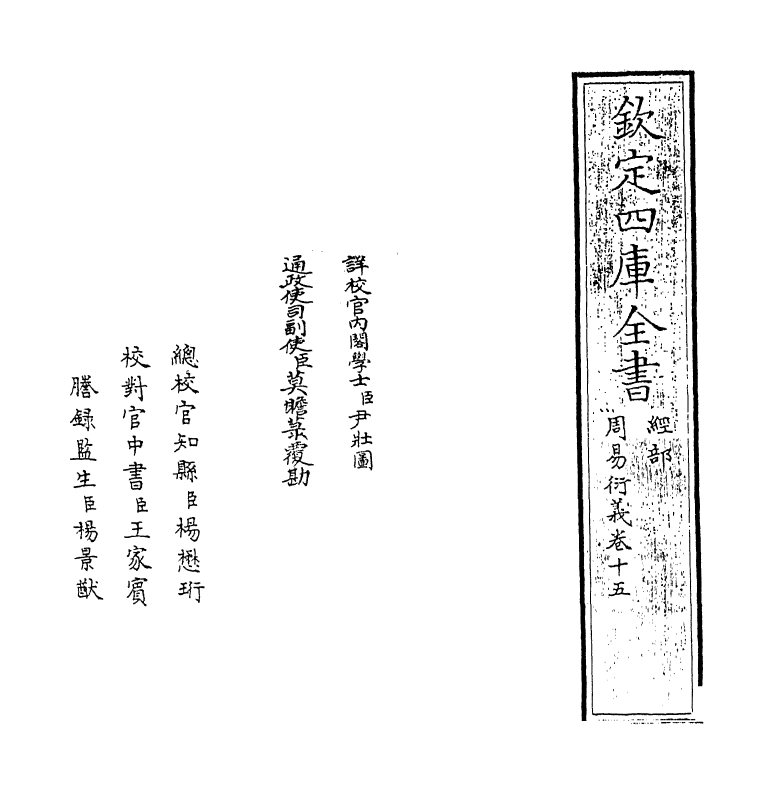 欽定四庫全書
經部
周易衍義卷十五
詳校官內閣學士臣尹壯圖
通政使司副使臣莫瞻菉覆勘
總校官知縣臣楊懋珩
校對官中書臣王家賓
謄錄監生臣楊景猷